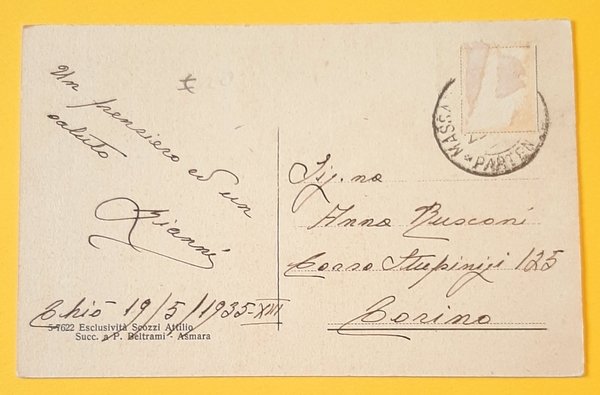 Un pensiero ed un
saluto
Gianni
Chió 19/5/1935-XIII
5-7622 Esclusività Scozzi Attilio
Succ. a P. Beltrami - Asmara
MASSA
PARTEN
Sig.na
Anna Rusconi
Corso Stupinigi 125
Torino